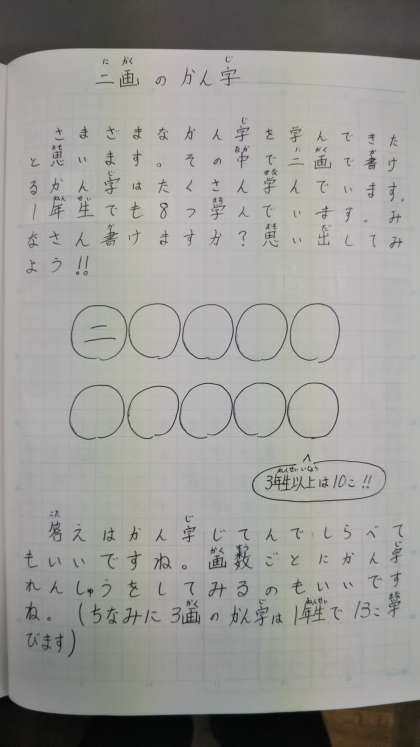 二画のかん字
さまざまなかん字を学んできた
と思います。その中で二画で書け
るかん字はたくさん学んでいます。
1年生でも8つ学んでいます。み
なさん書けますか?思い出してみ
よう!!
二
3年生以上は10こ!!
答えはかん字じてんでしらべて
もいいですね。画数ごとにかん字
れんしゅうをしてみるのもいいです
ね。(ちなみに3画のかん字は1年生で13こ学
びます)